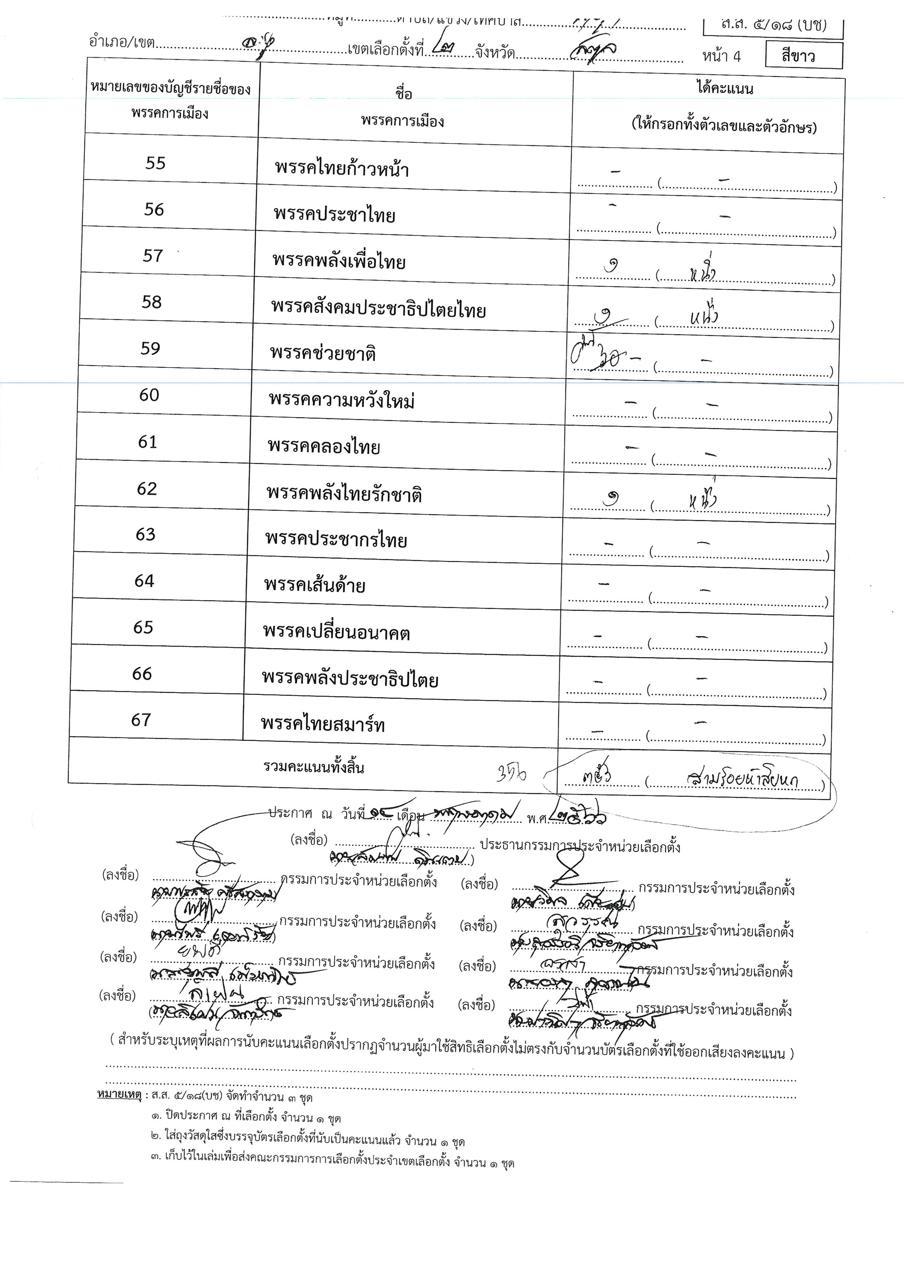 ส.ส. ๕/๑๘ (บช)
อำเภอ/เขต เขตเลือกตั้งที่ ๒ จังหวัด สตูล หน้า 4 สีขาว
หมายเลขของบัญชีรายชื่อของพรรคการเมือง ชื่อพรรคการเมือง ได้คะแนน (ให้กรอกทั้งตัวเลขและตัวอักษร)
55 พรรคไทยก้าวหน้า - (-)
56 พรรคประชาไทย - (-)
57 พรรคพลังเพื่อไทย ๑ (หนึ่ง)
58 พรรคสังคมประชาธิปไตยไทย ๑ (หนึ่ง)
59 พรรคช่วยชาติ - (-)
60 พรรคความหวังใหม่ - (-)
61 พรรคคลองไทย - (-)
62 พรรคพลังไทยรักชาติ ๑ (หนึ่ง)
63 พรรคประชากรไทย - (-)
64 พรรคเส้นด้าย - (-)
65 พรรคเปลี่ยนอนาคต - (-)
66 พรรคพลังประชาธิปไตย - (-)
67 พรรคไทยสมาร์ท - (-)
รวมคะแนนทั้งสิ้น 356 ๓๕๖ (สามร้อยห้าสิบหก)
ประกาศ ณ วันที่ ๑๔ เดือน พฤษภาคม พ.ศ. ๒๕๖๖
(ลงชื่อ) ประธานกรรมการประจำหน่วยเลือกตั้ง
(ลงชื่อ) กรรมการประจำหน่วยเลือกตั้ง (ลงชื่อ) กรรมการประจำหน่วยเลือกตั้ง
(ลงชื่อ) กรรมการประจำหน่วยเลือกตั้ง (ลงชื่อ) กรรมการประจำหน่วยเลือกตั้ง
(ลงชื่อ) กรรมการประจำหน่วยเลือกตั้ง (ลงชื่อ) กรรมการประจำหน่วยเลือกตั้ง
(ลงชื่อ) กรรมการประจำหน่วยเลือกตั้ง (ลงชื่อ) กรรมการประจำหน่วยเลือกตั้ง
( สำหรับระบุเหตุที่ผลการนับคะแนนเลือกตั้งปรากฏจำนวนผู้มาใช้สิทธิเลือกตั้งไม่ตรงกับจำนวนบัตรเลือกตั้งที่ใช้ออกเสียงลงคะแนน )
หมายเหตุ : ส.ส. ๕/๑๘(บช) จัดทำจำนวน ๓ ชุด
๑. ปิดประกาศ ณ ที่เลือกตั้ง จำนวน ๑ ชุด
๒. ใส่ถุงวัสดุใสซึ่งบรรจุบัตรเลือกตั้งที่นับเป็นคะแนนแล้ว จำนวน ๑ ชุด
๓. เก็บไว้ในเล่มเพื่อส่งคณะกรรมการการเลือกตั้งประจำเขตเลือกตั้ง จำนวน ๑ ชุด